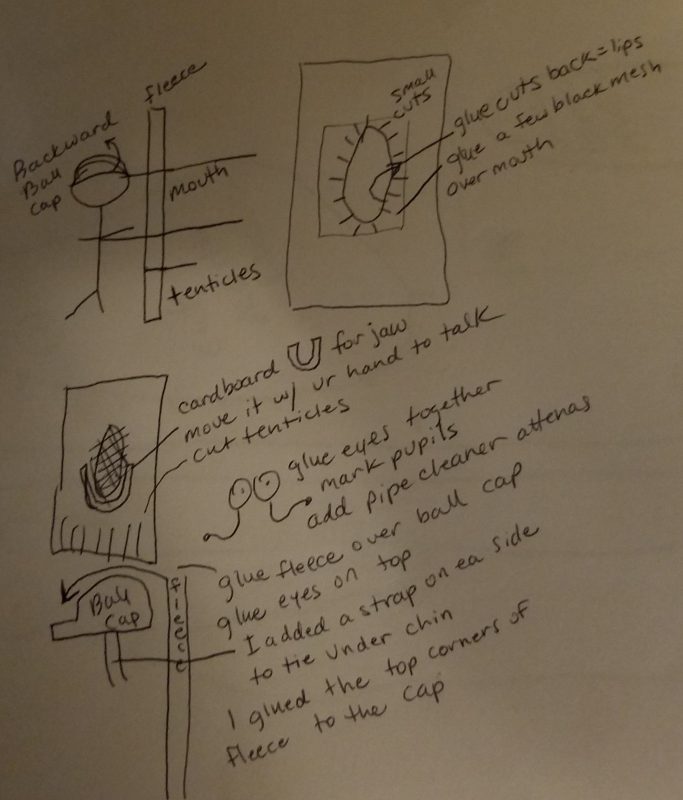 fleece
Backward
Ball
cap
mouth
tenticles
small
cuts
glue cuts back = lips
glue a few black mesh
over mouth
cardboard U for jaw
move it w/ ur hand to talk
cut tenticles
glue eyes together
mark pupils
add pipe cleaner attenas
glue fleece over ball cap
glue eyes on top
I added a strap on ea side
to tie under chin
I glued the top corners of
fleece to the cap
Ball
Cap
fleece